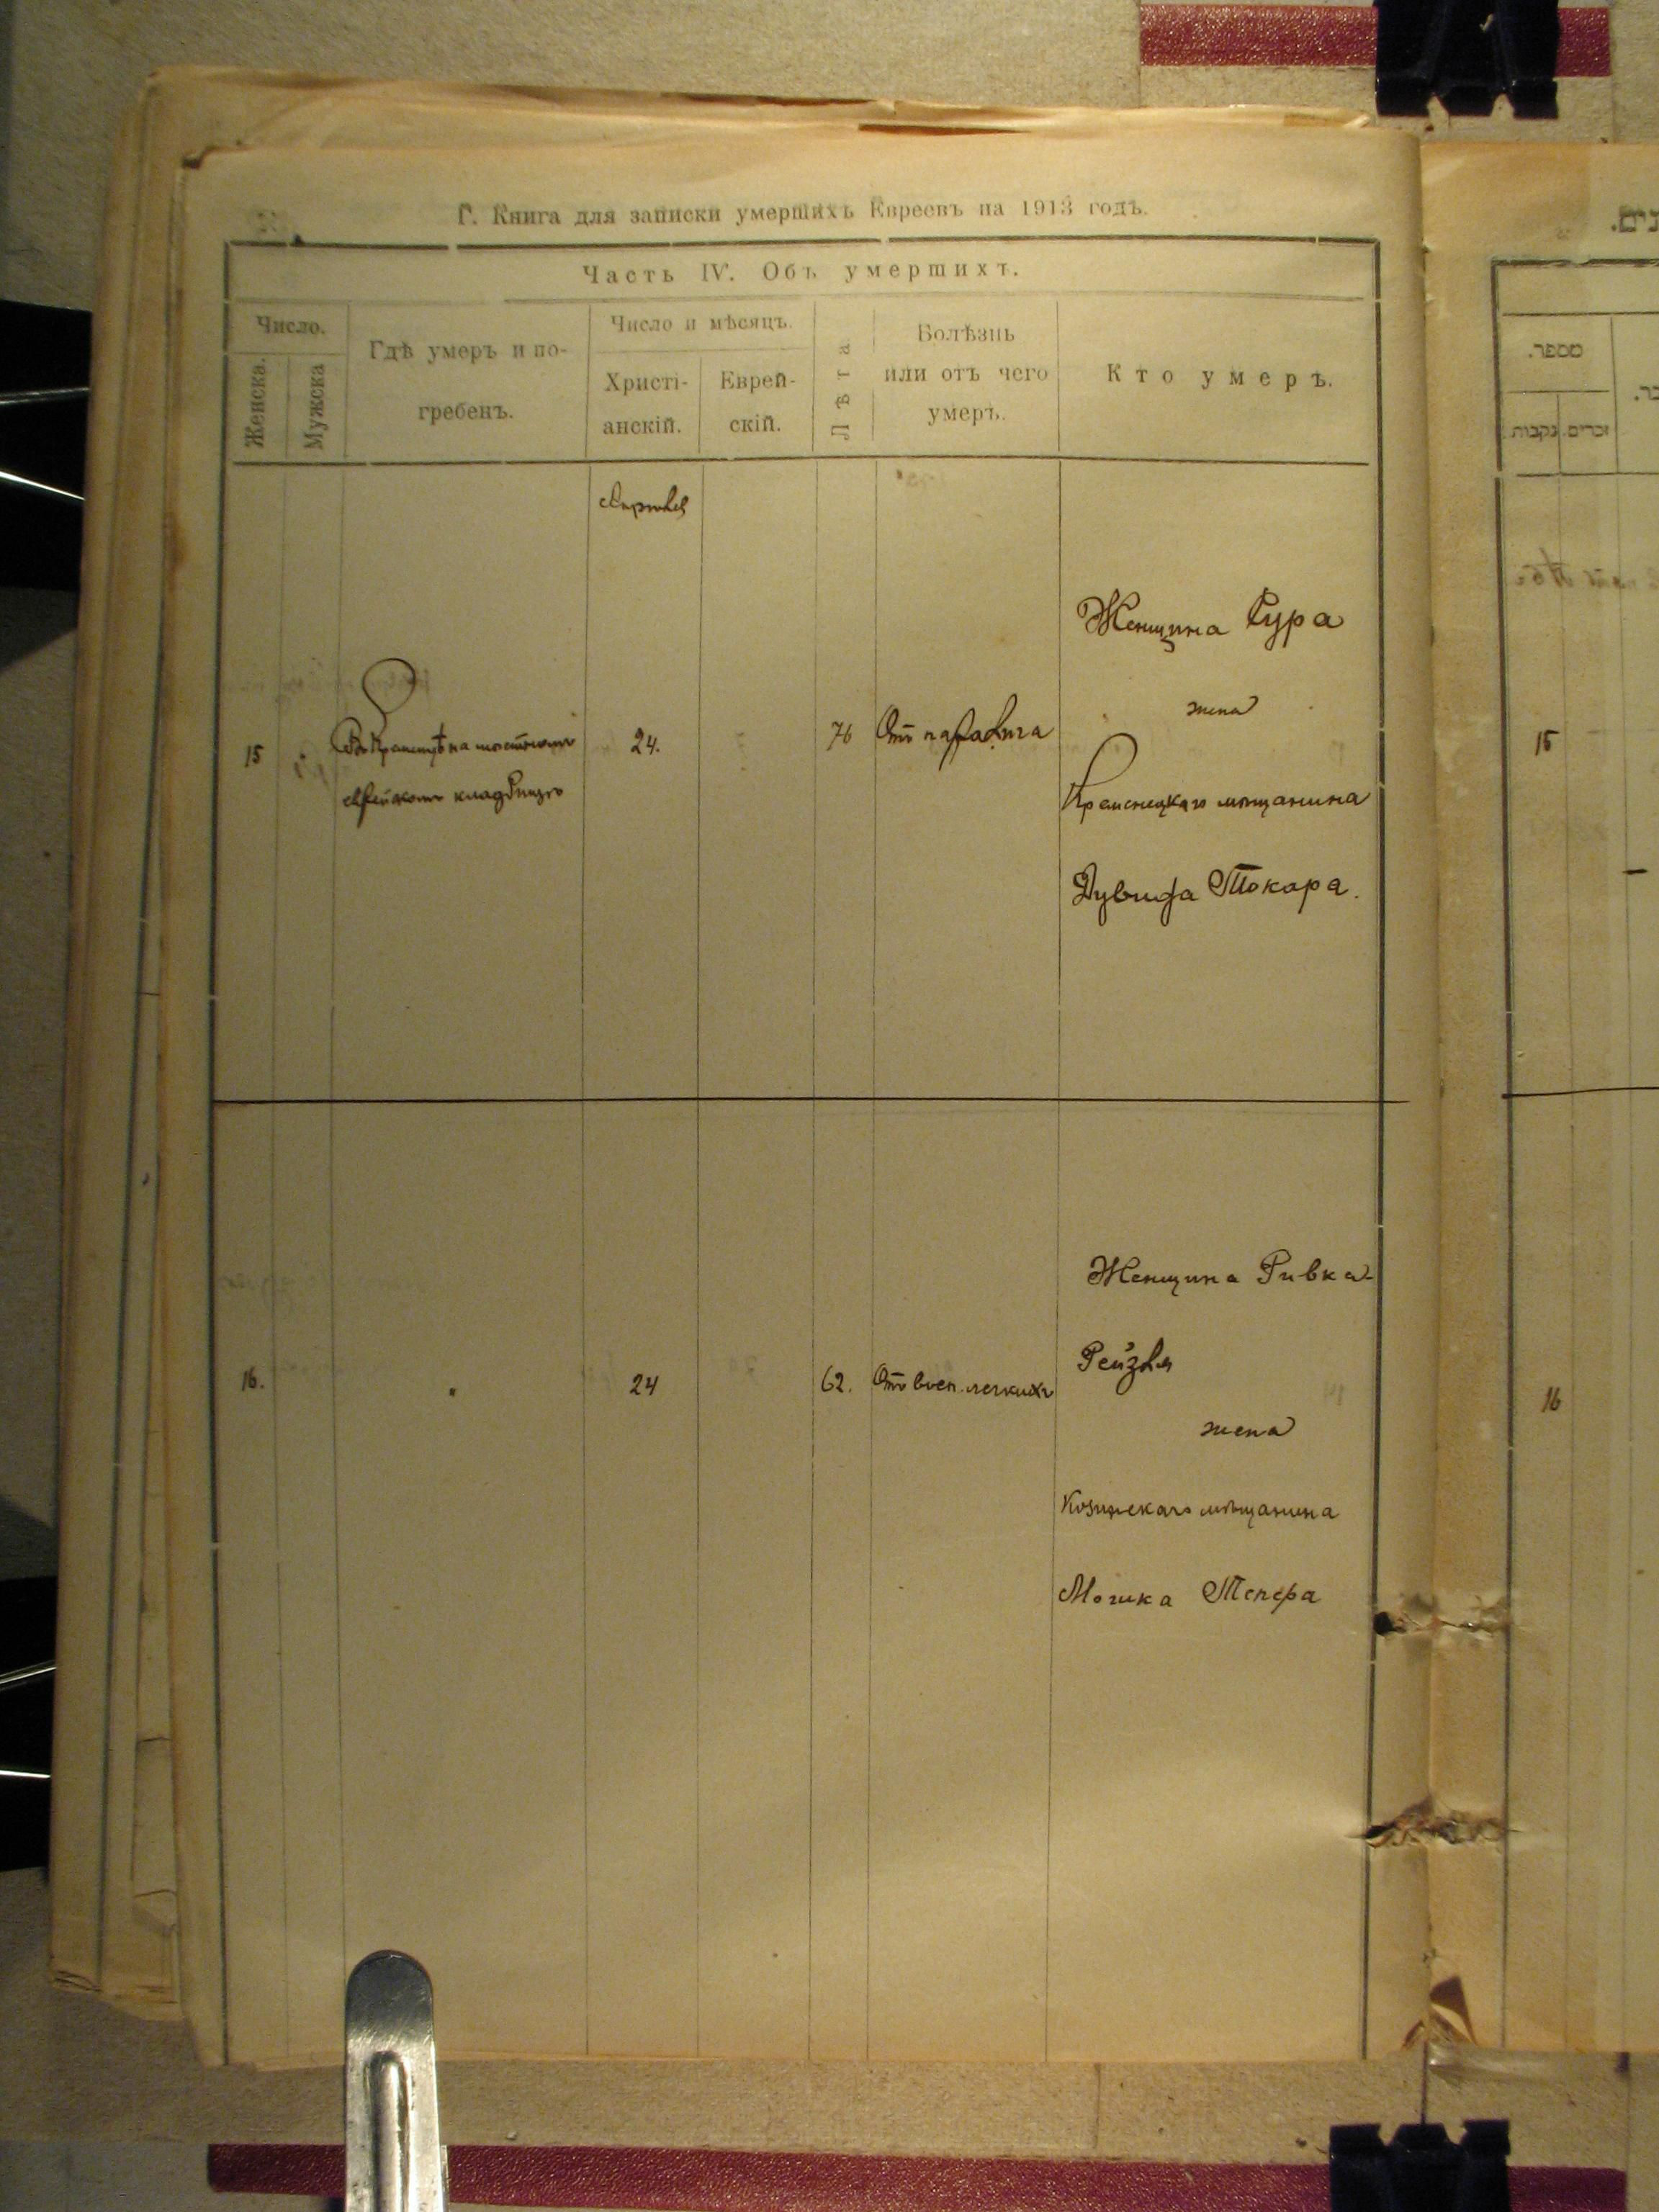 Г. Книга для записки умершихъ Евреевъ на 1913 годъ.
Часть IV. Объ умершихъ.
Число.
Женска.
Мужска
Гдѣ умеръ и по-
гребенъ.
Число и мѣсяцъ.
Христі-
анскій.
Еврей-
скій.
Лѣта
Болѣзнь
или отъ чего
умеръ.
Кто умеръ.
Апрѣль
15
Въ Кременцѣ на мѣстномъ
еврейскомъ кладбищѣ
24.
76
Отъ паралича
Женщина Сура
жена
Кременецкаго мѣщанина
Дувида Токара.
16.
"
24
62.
Отъ восп. легкихъ
Женщина Ривка-
Рейзля
жена
Козинскаго мѣщанина
Мошка Тепера
מספר.
זכרים.
נקבות.
15
16